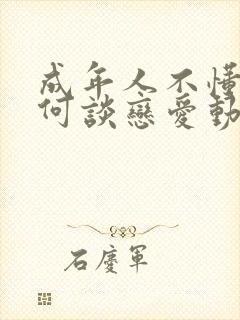 成年人不懂
何談戀愛動
石慶軍